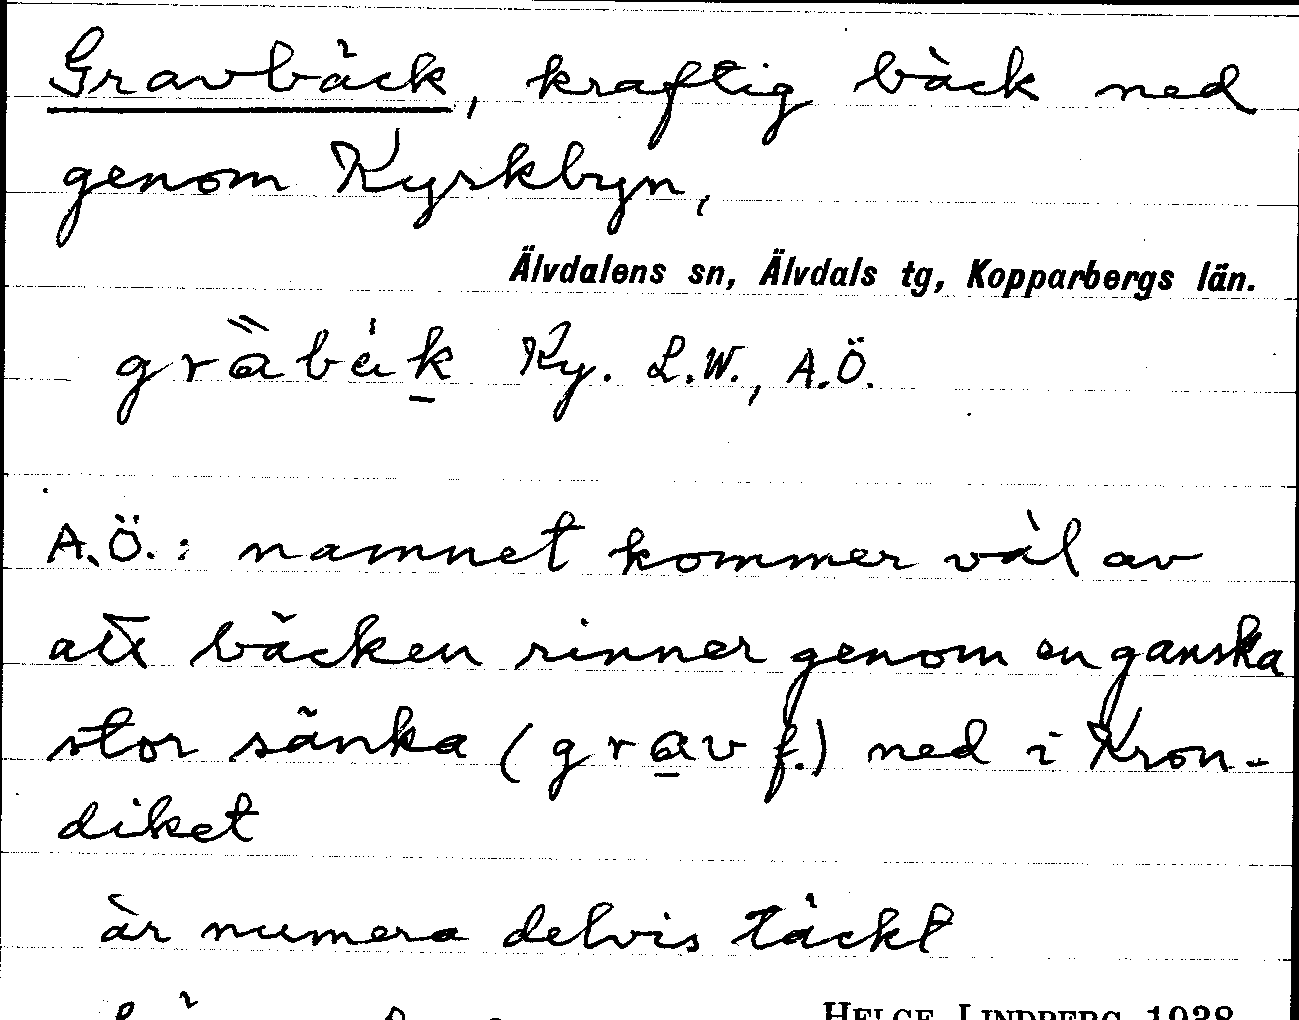 Gravbäck, kraftig bäck ned
genom Kyrkbyn,
Älvdalens sn, Älvdals tg, Kopparbergs län.
gràbäk Ky. L.W., A.Ö.
A.Ö.: namnet kommer väl av
att bäcken rinner genom en ganska
stor sänka (grav f.) ned i Kron-
diket
är numera delvis täckt
HELGE LINDBERG 1938